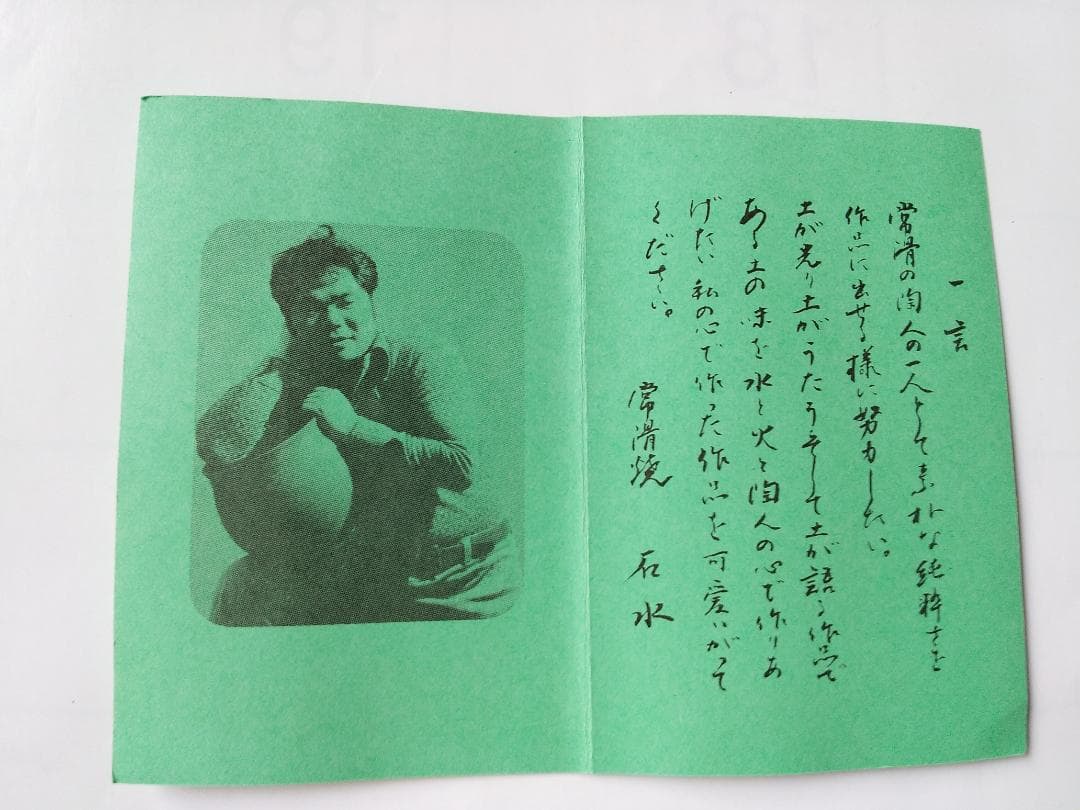 一言
常滑の陶人の一人として素朴な純粋さを
作品に出せる様に努力したい。
土が光り土がうたうそして土が語る作品で
ある土の味を水と火と陶人の心で作りあ
げたい私の心で作った作品を可愛いがって
ください。
常滑焼 石水
18
19